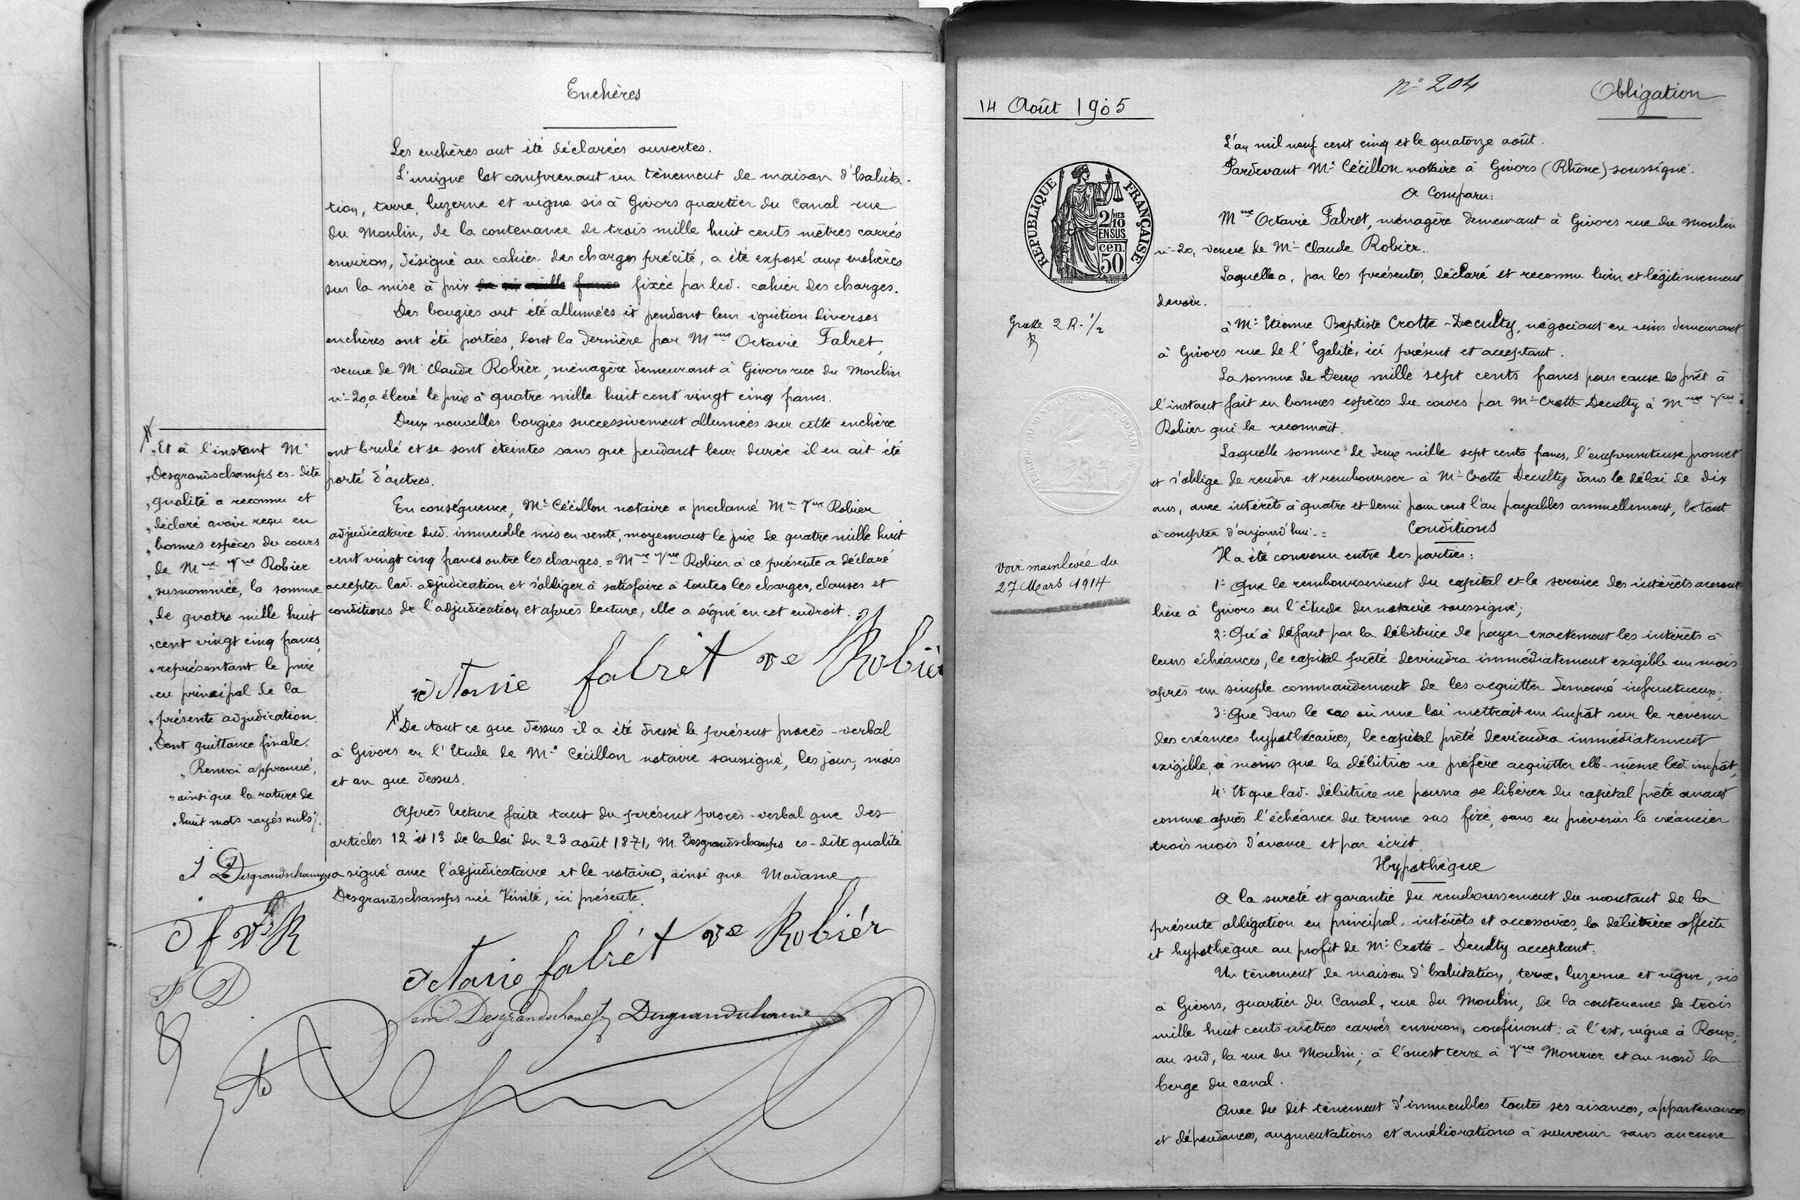 Enchères
Les enchères ont été déclarées ouvertes.
L'unique lot comprenant un tènement de maison d'habita-
tion, terre, luzerne et vigne sis à Givors quartier du Canal rue
du Moulin, de la contenance de trois mille huit cents mètres carrés
environ, désigné au cahier des charges précité, a été exposé aux enchères
sur la mise à prix fixée par led. cahier des charges.
Des bougies ont été allumées et pendant leur ignition diverses
enchères ont été portées, dont la dernière par Mme Octavie Fabret,
veuve de Mr Claude Robier, ménagère demeurant à Givors rue du Moulin
no 20, a élevé le prix à quatre mille huit cent vingt cinq francs.
Deux nouvelles bougies successivement allumées sur cette enchère
ont brulé et se sont éteintes sans que pendant leur durée il en ait été
porté d'autres.
En conséquence, Me Cécillon notaire a proclamé Mme Vve Robier
adjudicataire dud. immeuble mis en vente, moyennant le prix de quatre mille huit
cent vingt cinq francs outre les charges. Mme Vve Robier à ce présente a déclaré
accepter lad. adjudication et s'obliger à satisfaire à toutes les charges, clauses et
conditions de l'adjudication, et après lecture, elle a signé en cet endroit.
octavie fabret ve Robiér
De tout ce que dessus il a été dressé le présent procès-verbal
à Givors en l'Etude de Me Cécillon notaire soussigné, les jour, mois
et an que dessus.
Après lecture faite tant du présent procès-verbal que des
articles 12 et 13 de la loi du 23 août 1871, M. Desgrandschamps es-dite qualité
a signé avec l'adjudicataire et le notaire, ainsi que Madame
Desgrandschamps née Vinité, ici présente.
octavie fabrét ve Robiér
Desgrandschamps
Et à l'instant Mr
Desgrandschamps es-dite
qualité a reconnu et
déclaré avoir reçu en
bonnes espèces du cours
de Mme Vve Robier
susnommée, la somme
de quatre mille huit
cent vingt cinq francs,
représentant le prix
en principal de la
présente adjudication.
Dont quittance finale.
Renvoi approuvé,
ainsi que la rature de
huit mots rayés nuls.
J Desgrandschamps
o f ve R
J D
14 Août 1905
No 204
Obligation
RÉPUBLIQUE FRANÇAISE
2/10
EN SUS
50 cen.
2 R. 1/2
voir mainlevée du
27 Mars 1914
L'an mil neuf cent cinq et le quatorze août.
Pardevant Me Cécillon notaire à Givors (Rhône) soussigné.
a Comparu:
Mme Octavie Fabret, ménagère demeurant à Givors rue du Moulin
no 20, veuve de Mr Claude Robier.
Laquelle a, par les présentes, déclaré et reconnu bien et légitimement
devoir.
à Mr Etienne Baptiste Crotte-Decultty, négociant en vins demeurant
à Givors rue de l'Egalité, ici présent et acceptant.
La somme de Deux mille sept cents francs pour cause de prêt à
l'instant fait en bonnes espèces du cours par Mr Crotte Decultty à Mme Vve
Robier qui le reconnait.
Laquelle somme de deux mille sept cents francs, l'emprunteuse promet
et s'oblige de rendre et rembourser à Mr Crotte Decultty dans le délai de dix
ans, avec intérêts à quatre et demi pour cent l'an payables annuellement, le tout
à compter d'aujourd'hui.
Conditions
Il a été convenu entre les parties:
1° Que le remboursement du capital et le service des intérêts auront
lieu à Givors en l'étude du notaire soussigné;
2° Qu'à défaut par la débitrice de payer exactement les intérêts à
leurs échéances, le capital prêté deviendra immédiatement exigible un mois
après un simple commandement de les acquitter demeuré infructueux;
3° Que dans le cas où une loi mettrait un impôt sur le revenu
des créances hypothécaires, le capital prêté deviendra immédiatement
exigible, a moins que la débitrice ne préfère acquitter elle-même led. impôt,
4° Et que lad. débitrice ne pourra se libérer du capital prêté avant
comme après l'échéance du terme sus fixé, sans en prévenir le créancier
trois mois d'avance et par écrit.
Hypothèque
A la sureté et garantie du remboursement du montant de la
présente obligation en principal, intérêts et accessoires, la débitrice affecte
et hypothèque au profit de Mr Crotte-Decultty acceptant:
Un tènement de maison d'habitation, terre, luzerne et vigne, sis
à Givors, quartier du Canal, rue du Moulin, de la contenance de trois
mille huit cents mètres carrés environ, confinant: à l'est, vigne à Roux;
au sud, la rue du Moulin; à l'ouest terre à Vve Mounier et au nord la
berge du canal.
Avec du dit tènement d'immeubles toutes ses aisances, appartenances
et dépendances, augmentations et améliorations à survenir sans aucune